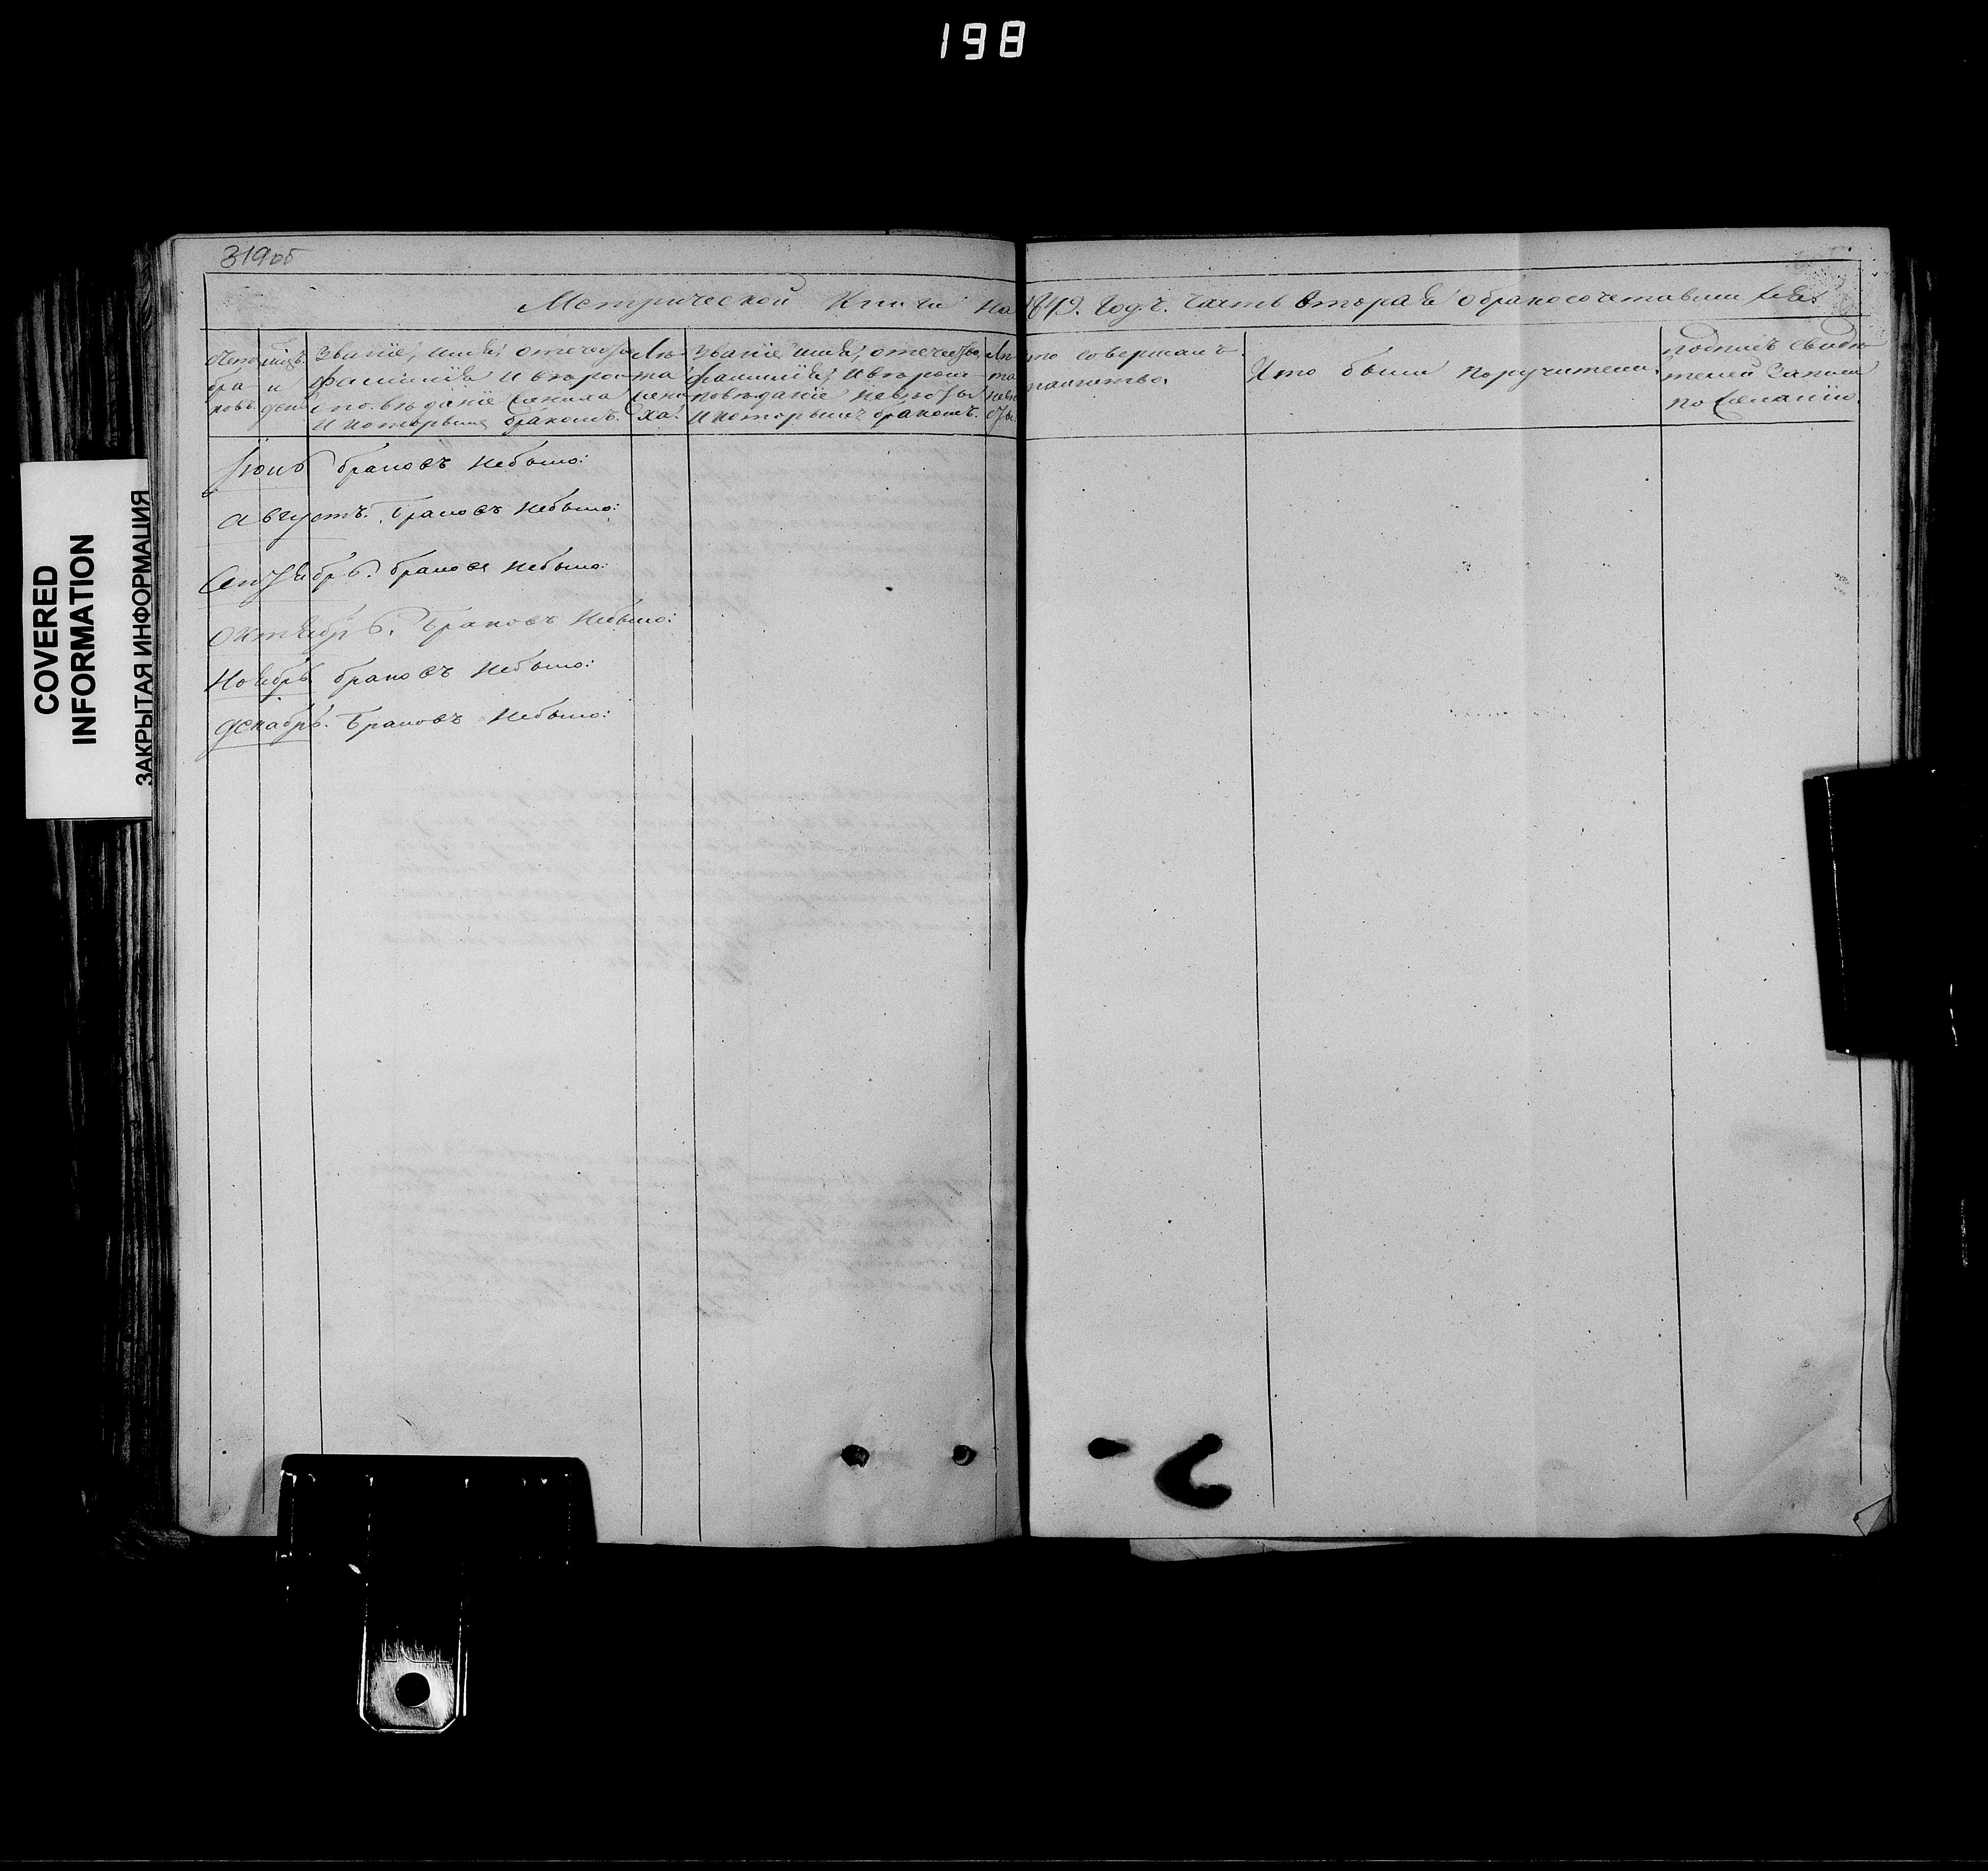 198
319об
Метрической Книги на 1849. Годъ. Часть Вторая о бракосочетавшихся.
Счетъ бра-ковъ.
мцъ. и дни
Званіе, имя, отечество,
фамилія и вѣроис-
повѣданіе жениха
и которымъ бракомъ.
Лѣ-
та
жени
ха.
Званіе, имя, отечество,
фамилія, и вѣроис-
повѣданіе невѣсты
и которымъ бракомъ.
Лѣ-
та
невѣ
сты
кто совершалъ
таинство.
Кто были поручители.
подпись свидѣ
телей записи
по желанію.
Іюль браковъ небыло:
Августъ. Браковъ небыло:
Сентябрь. браковъ небыло:
Октябрь. Браковъ небыло:
Ноябрь браковъ небыло:
Декабрь. Браковъ небыло:
COVERED
INFORMATION
ЗАКРЫТАЯ ИНФОРМАЦИЯ